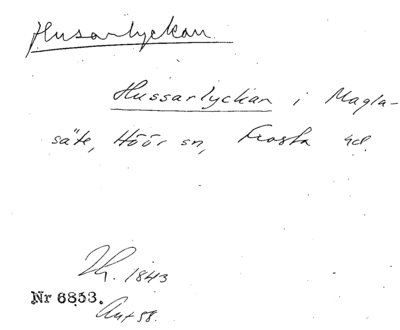 Husarlyckan
Hussarlyckan i Magla-
säte, Höör sn, Frosta hd.
Th. 1843
Nr 6853.
Ant 58.